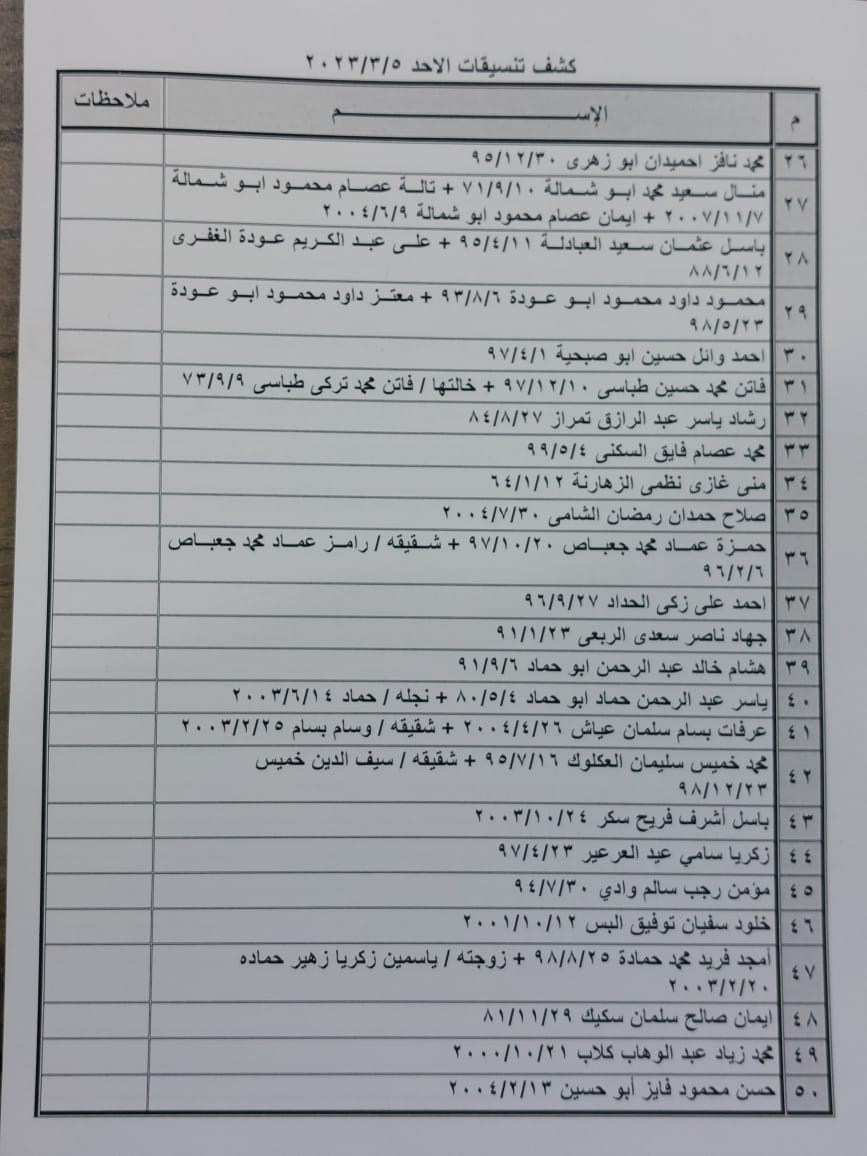 كشف تنسيقات الاحد ٢٠٢٣/٣/٥
م الإســــــــم ملاحظات
٢٦ محمد نافز احميدان ابو زهرى ٩٥/١٢/٣٠
٢٧ منال سعيد محمد ابو شمالة ٧١/٩/١٠ + تالة عصام محمود ابو شمالة
٢٠٠٧/١١/٧ + ايمان عصام محمود ابو شمالة ٢٠٠٤/٦/٩
٢٨ باسل عثمان سعيد العبادلة ٩٥/٤/١١ + على عبد الكريم عودة الغفرى
٨٨/٦/١٢
٢٩ محمود داود محمود ابو عودة ٩٣/٨/٦ + معتز داود محمود ابو عودة
٩٨/٥/٢٣
٣٠ احمد وائل حسين ابو صبحية ٩٧/٤/١
٣١ فاتن محمد حسين طباسى ٩٧/١٢/١٠ + خالتها / فاتن محمد تركى طباسى ٧٣/٩/٩
٣٢ رشاد ياسر عبد الرازق تمراز ٨٤/٨/٢٧
٣٣ محمد عصام فايق السكنى ٩٩/٥/٤
٣٤ منى غازى نظمى الزهارنة ٦٤/١/١٢
٣٥ صلاح حمدان رمضان الشامى ٢٠٠٤/٧/٣٠
٣٦ حمزة عماد محمد جعباص ٩٧/١٠/٢٠ + شقيقه / رامز عماد محمد جعباص
٩٦/٢/٦
٣٧ احمد على زكى الحداد ٩٦/٩/٢٧
٣٨ جهاد ناصر سعدى الربعى ٩١/١/٢٣
٣٩ هشام خالد عبد الرحمن ابو حماد ٩١/٩/٦
٤٠ ياسر عبد الرحمن حماد ابو حماد ٨٠/٥/٤ + نجله / حماد ٢٠٠٣/٦/١٤
٤١ عرفات بسام سلمان عياش ٢٠٠٤/٤/٢٦ + شقيقه / وسام بسام ٢٠٠٣/٢/٢٥
٤٢ محمد خميس سليمان العكلوك ٩٥/٧/١٦ + شقيقه / سيف الدين خميس
٩٨/١٢/٢٣
٤٣ باسل أشرف فريح سكر ٢٠٠٣/١٠/٢٤
٤٤ زكريا سامي عيد العرعير ٩٧/٤/٢٣
٤٥ مؤمن رجب سالم وادي ٩٤/٧/٣٠
٤٦ خلود سفيان توفيق البس ٢٠٠١/١٠/١٢
٤٧ أمجد فريد محمد حمادة ٩٨/٨/٢٥ + زوجته / ياسمين زكريا زهير حماده
٢٠٠٣/٢/٢٠
٤٨ ايمان صالح سلمان سكيك ٨١/١١/٢٩
٤٩ محمد زياد عبد الوهاب كلاب ٢٠٠٠/١٠/٢١
٥٠ حسن محمود فايز أبو حسين ٢٠٠٤/٢/١٣